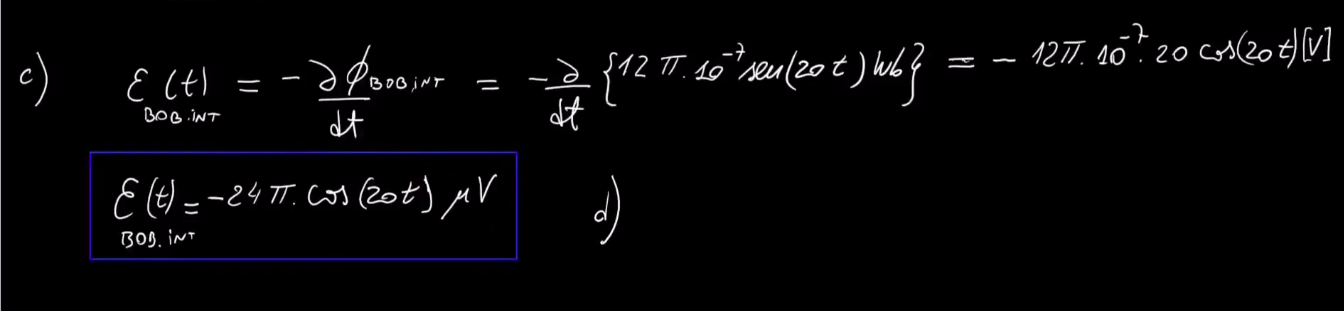 c) ℰ(t) BOB.INT = - ∂ϕ BOB.INT / dt = - ∂/dt {12 π. 10⁻⁷ sen(20 t) Wb} = - 12π. 10⁻⁷. 20 cos(20 t) [V]
ℰ(t) BOB.INT = -24 π. cos(20t) μV
d)